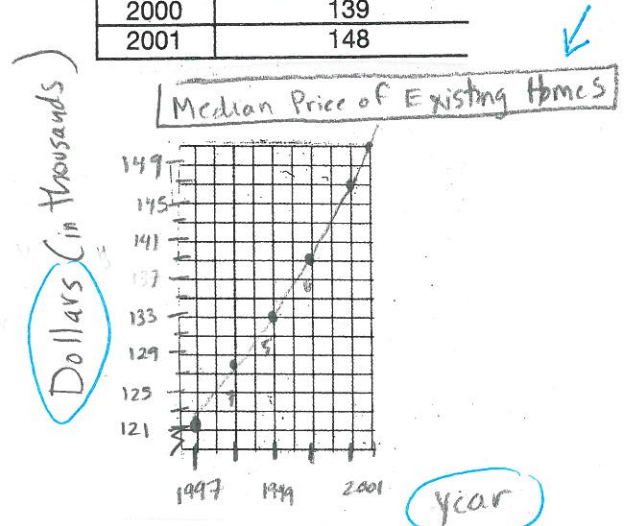 2000 139
2001 148
Median Price of Existing Homes
Dollars (in thousands)
149
145
141
137
133
129
125
121
5
6
1997 1999 2001
year